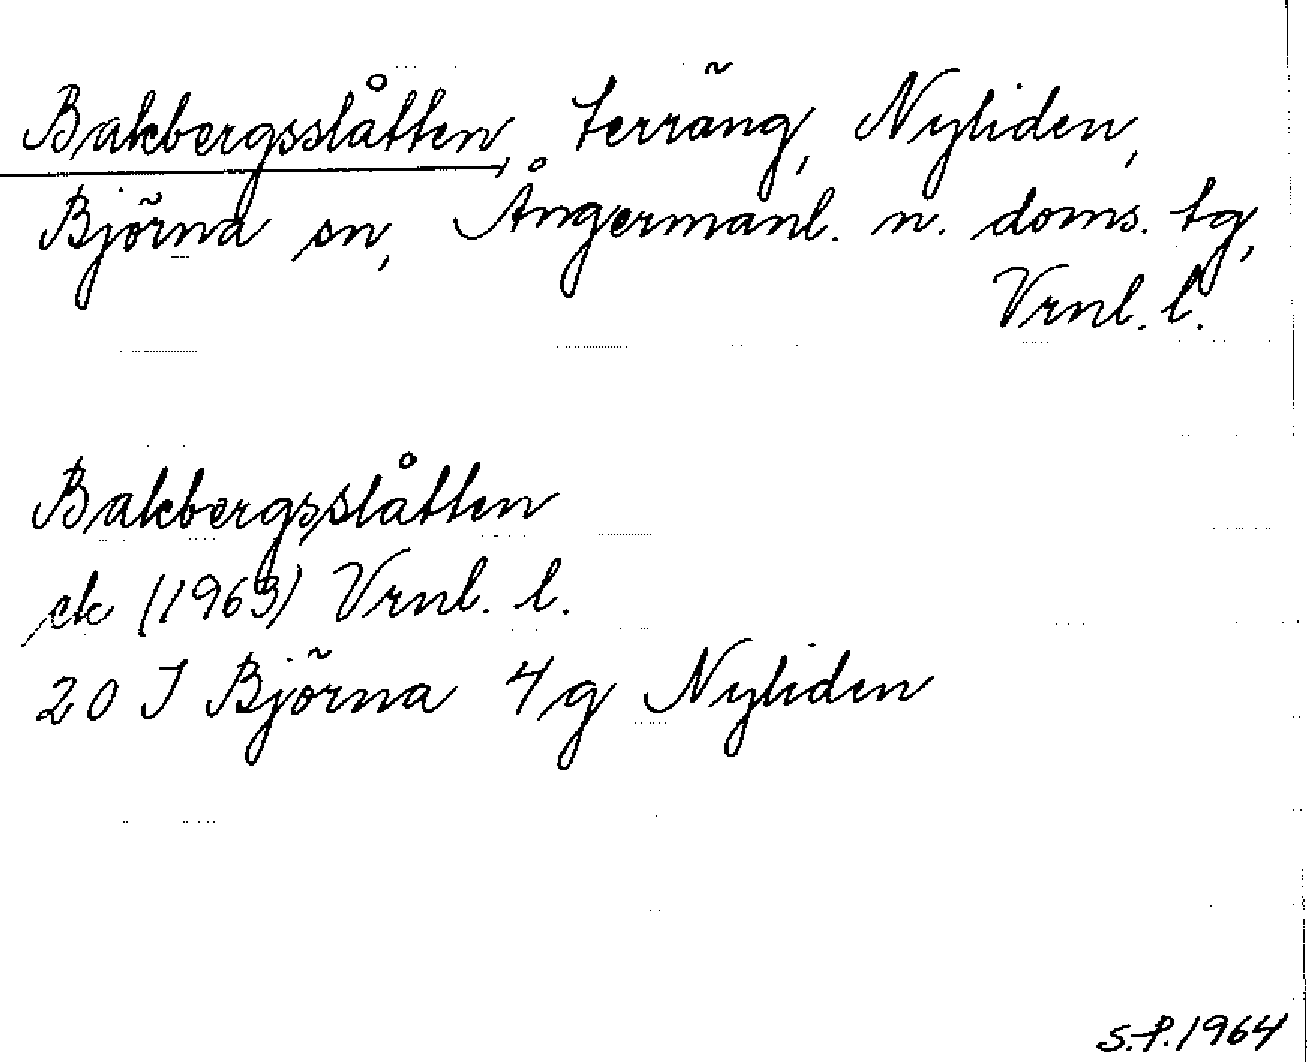 Bakbergsslåtten, terräng, Nyliden,
Björna sn, Ångermanl. n. doms. tg,
Vrnl. l.
Bakbergsslåtten
ek (1963) Vrnl. l.
20 J Björna 4g Nyliden
S.P.1964